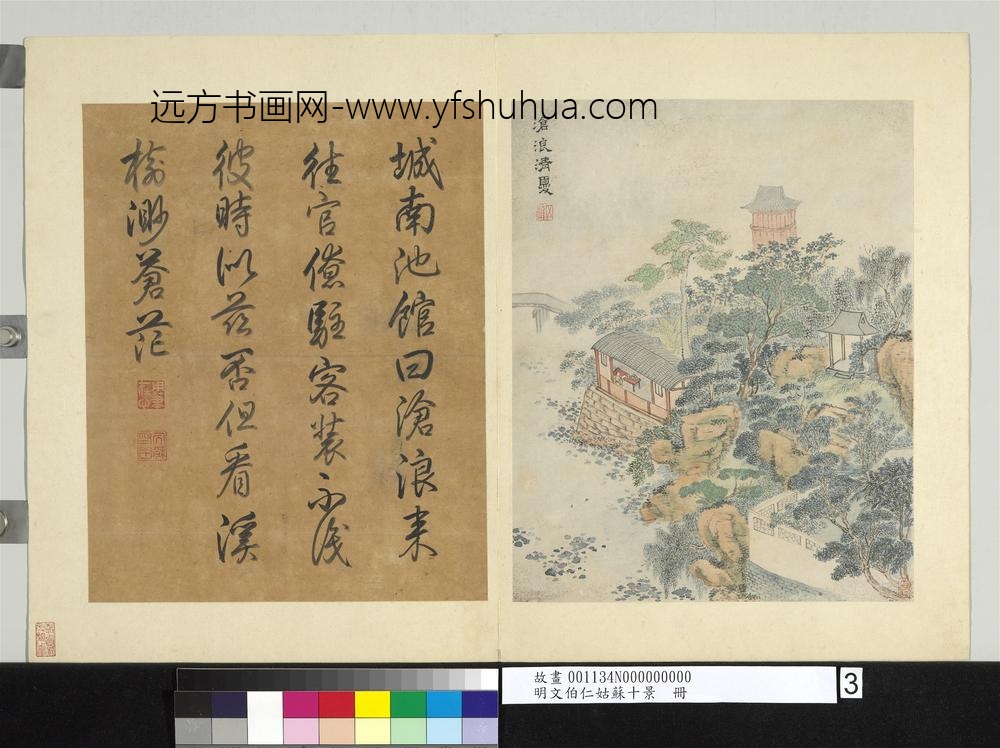 远方书画网-www.yfshuhua.com
城南池館曰滄浪来
往官僚駐客裝不識
彼時似茲否但看溪
樹渺蒼茫
滄浪清夏
故畫 001134N000000000
明文伯仁姑蘇十景 冊
3